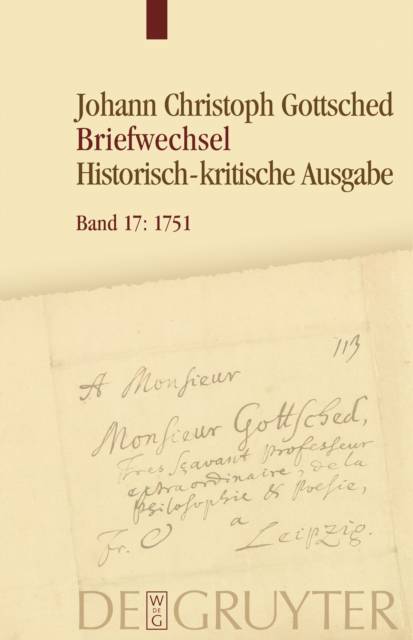 Johann Christoph Gottsched
Briefwechsel
Historisch-kritische Ausgabe
Band 17: 1751
113
A Monsieur
Monsieur Gottsched,
Tres Sçavant Professeur
extraordinaire, de la
Philosophie & Poesie,
Fr. a
Leipzig.
DE GRUYTER
W
DE
G